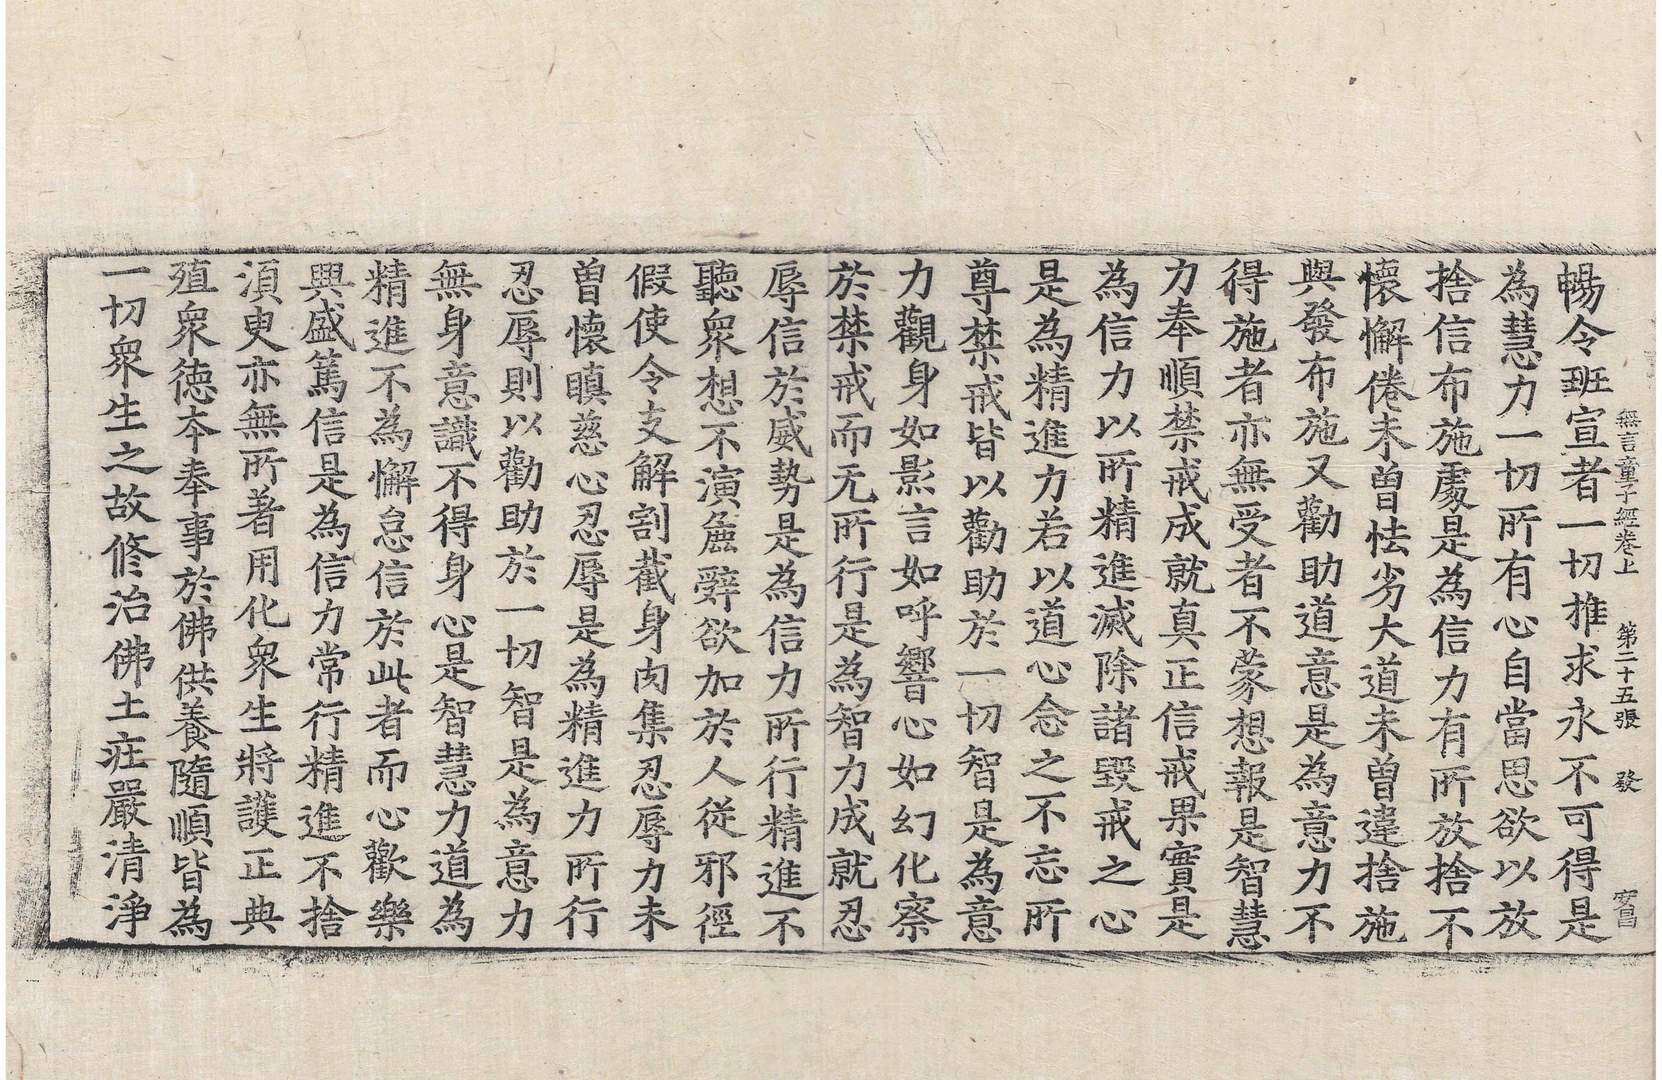 無言童子經卷上 第二十五張 發 安昌
暢令班宣者一切推求永不可得是
為慧力一切所有心自當思欲以放
捨信布施處是為信力有所放捨不
懷懈倦未曾怯劣大道未曾違捨施
與發布施又勸助道意是為意力不
得施者亦無受者不蒙想報是智慧
力奉順禁戒成就真正信戒果實是
為信力以所精進滅除諸毀戒之心
是為精進力若以道心念之不忘所
尊禁戒皆以勸助於一切智是為意
力觀身如影言如呼響心如幻化察
於禁戒而无所行是為智力成就忍
辱信於威勢是為信力所行精進不
聽衆想不演麁辭欲加於人從邪徑
假使令支解割截身肉集忍辱力未
曽懷瞋慈心忍辱是為精進力所行
忍辱則以勸助於一切智是為意力
無身意識不得身心是智慧力道為
精進不為懈怠信於此者而心歡樂
興盛篤信是為信力常行精進不捨
湏臾亦無所著用化衆生將護正典
殖衆德夲奉事於佛供養隨順皆為
一切衆生之故修治佛土莊嚴清淨